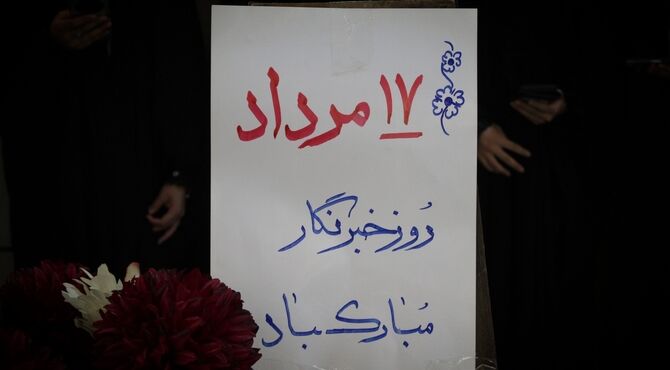 ۱۷ مرداد
روز خبرنگار
مبارک باد